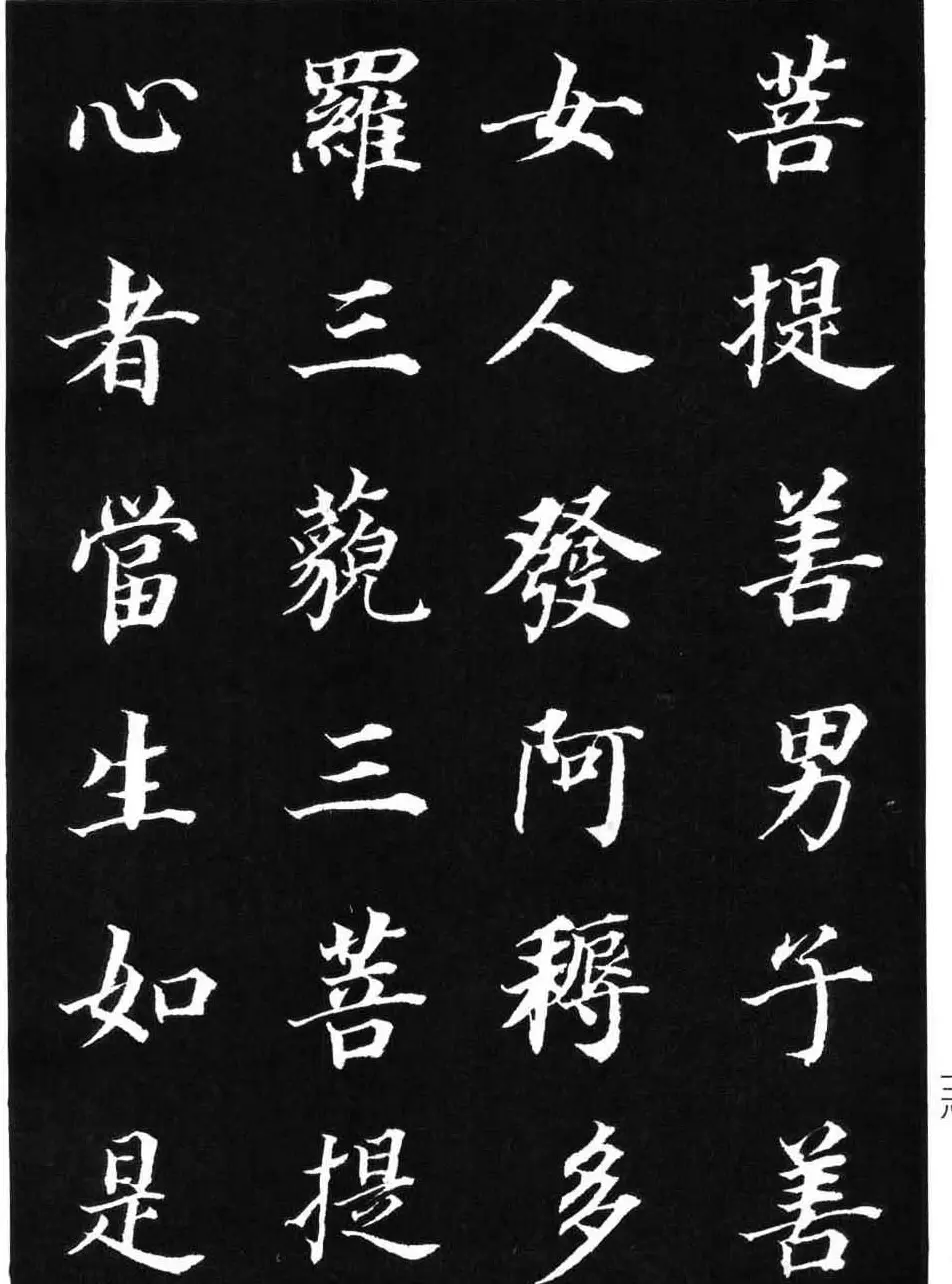 菩提善男子善
女人發阿耨多
羅三藐三菩提
心者當生如是